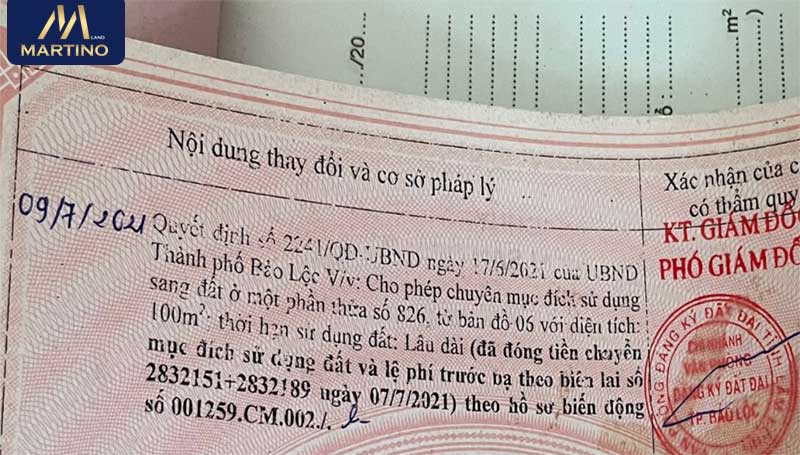 M LAND
MARTINO
../20...
m²
Nội dung thay đổi và cơ sở pháp lý
Xác nhận của c
có thẩm quy
09/7/2021
KT. GIÁM ĐỐ
PHÓ GIÁM ĐỐ
Quyết định số 2241/QĐ-UBND ngày 17/6/2021 của UBND
Thành phố Bảo Lộc V/v: Cho phép chuyên mục đích sử dụng
sang đất ở một phần thửa số 826, tờ bản đồ 06 với diện tích:
100m²; thời hạn sử dụng đất: Lâu dài (đã đóng tiền chuyển
mục đích sử dụng đất và lệ phí trước bạ theo biên lai số
2832151+2832189 ngày 07/7/2021) theo hồ sơ biến động
số 001259.CM.002./.
ĐĂNG KÝ ĐẤT ĐAI TỈNH
CHI NHÁNH
VĂN PHÒNG
ĐĂNG KÝ ĐẤT ĐAI
TP. BẢO LỘC